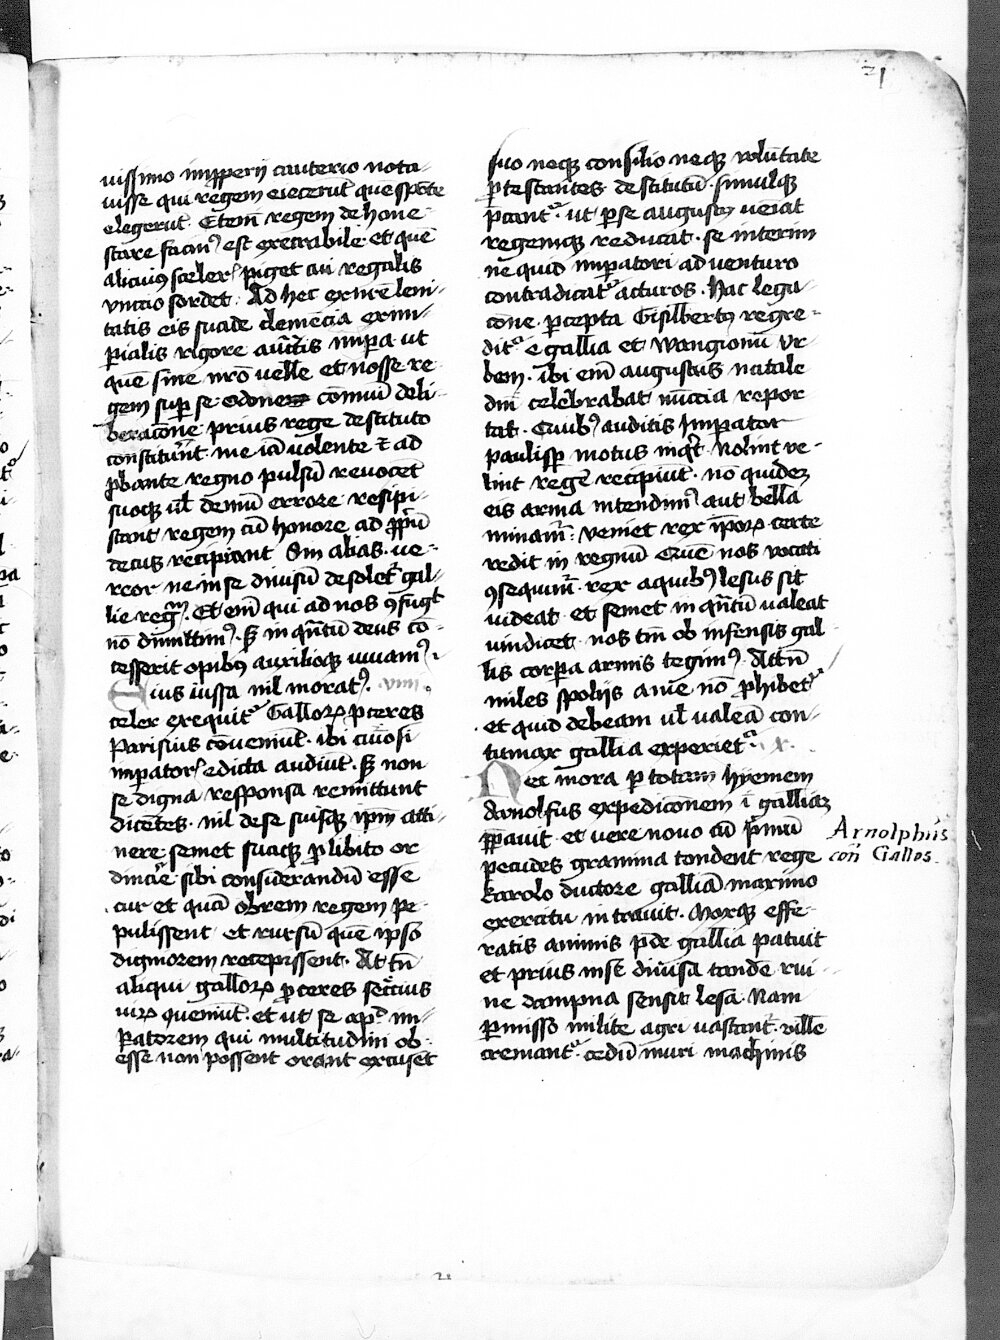 21
uissimo impperij cauterio nota-
uisse qui regem eiecerūt que spōte
elegerūt. Etem̄ regem de hone-
stare facin⁹ est execrabile et quē
alicui⁹ sceler̄ piget cui regalis
vnctio sordet. Ad hec ex nr̄e leni-
tatis eis suade clemēcia ex im-
perialis rigore auctītis impa ut
quē sine nr̄o velle et nosse re-
gem sup se odonem cōmūi deli-
beracōne prius rege destituto
constituūt me iā volente ⁊ ad
probante regno pulsū reuocet
suoqꝫ ul̄ demū errore resipi-
scant regem cū honore ad ꝓpriū
decus recipiant Sin alias. ve-
reor ne in se diuisū desolet̄ gal-
lie regnū. Et em̄ qui ad nos ꝯfugit
nō dimittim⁹. Sꝫ in qn̄tū deus cō-
cesserit opibꝰ auxilioqꝫ iuuam⁹.
Eius iussa nil morat⁹. viiii.
celer exequit᷑ Gallorꝫ ꝓceres
Parisius cōueniūt. ibi cūosi
imperator̄ edicta audiūt. Sꝫ non
se digna responsa remittunt
dicētes. nil de se suisqꝫ ip̄m atti-
nere. semet suaqꝫ ꝓ libito or-
dinare. sibi considerandū esse
cur et quā obrem regem pe-
pulissent et rursū quē ipso
digniorem recepissent. At tn̄
aliqui gallorꝫ ꝓceres seccius
uirꝫ queniūt. et ut se apd̄ im-
peratorem qui multitudini ob-
esse non possent orant excuset
suo neqꝫ consilio neqꝫ volūtate
ꝓtestantes destitutū. simulqꝫ
p̄cant᷑ ut per se august⁹ veniat
regemqꝫ reducat. se interim
ne quid imperatori ad venturo
contradicat᷑ acturos. Hac lega-
cōne ꝑcepta Gisilbert⁹ regre-
dit᷑ e gallia et Wangionū vr-
bem. ibi em̄ augustus natale
dn̄i celebrabat nūccia repor
tat. Quibꝰ auditis Imperator
paulisꝑ motus inqt̄ Nolint ve-
lint regē recipiūt. nō quidez
eis arma intendim⁹ aut bella
minam̄. veniet rex ipsorꝫ certe
redit in regnū Quē nos vocati
ꝯsequim̄. rex a quibꝰ lesus sit
videat. et semet in qn̄tū valeat
vindicet. nos tm̄ ob infensis gal-
lis corpora armis tegim⁹. Attn̄
miles spolijs a me nō ꝓhibet᷑
et quid debeam ul̄ valeā con-
tumax gallia experiet᷑. x.
Nec mora ꝑ totam hyemem
Arnolfus expedicōnem ī galliaz
ꝓpauit. et vere nouo cū primū
pecudes gramina tondent rege
Karolo ductore galliā maximo
exercitu intrauit. Moxqꝫ effe-
ratis animis pꝛede gallia patuit
et prius in se diuisa tandē rui-
ne dampna sensit lesa. Nam
ꝑmisso milite agri vastant᷑. ville
cremant᷑. cedūt muri machinis
Arnolphus
con̄ Gallos.
21